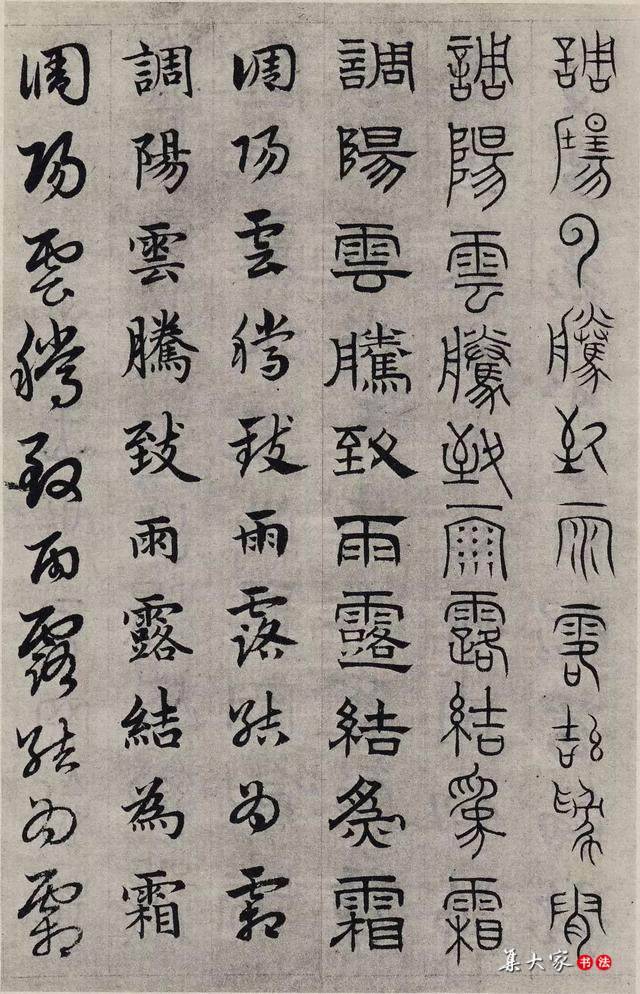 調陽雲騰致雨露結為霜
調陽雲騰致雨露結為霜
調陽雲騰致雨露結為霜
調陽雲騰致雨露結為霜
調陽雲騰致雨露結為霜
調陽雲騰致雨露結為霜
集大家书法